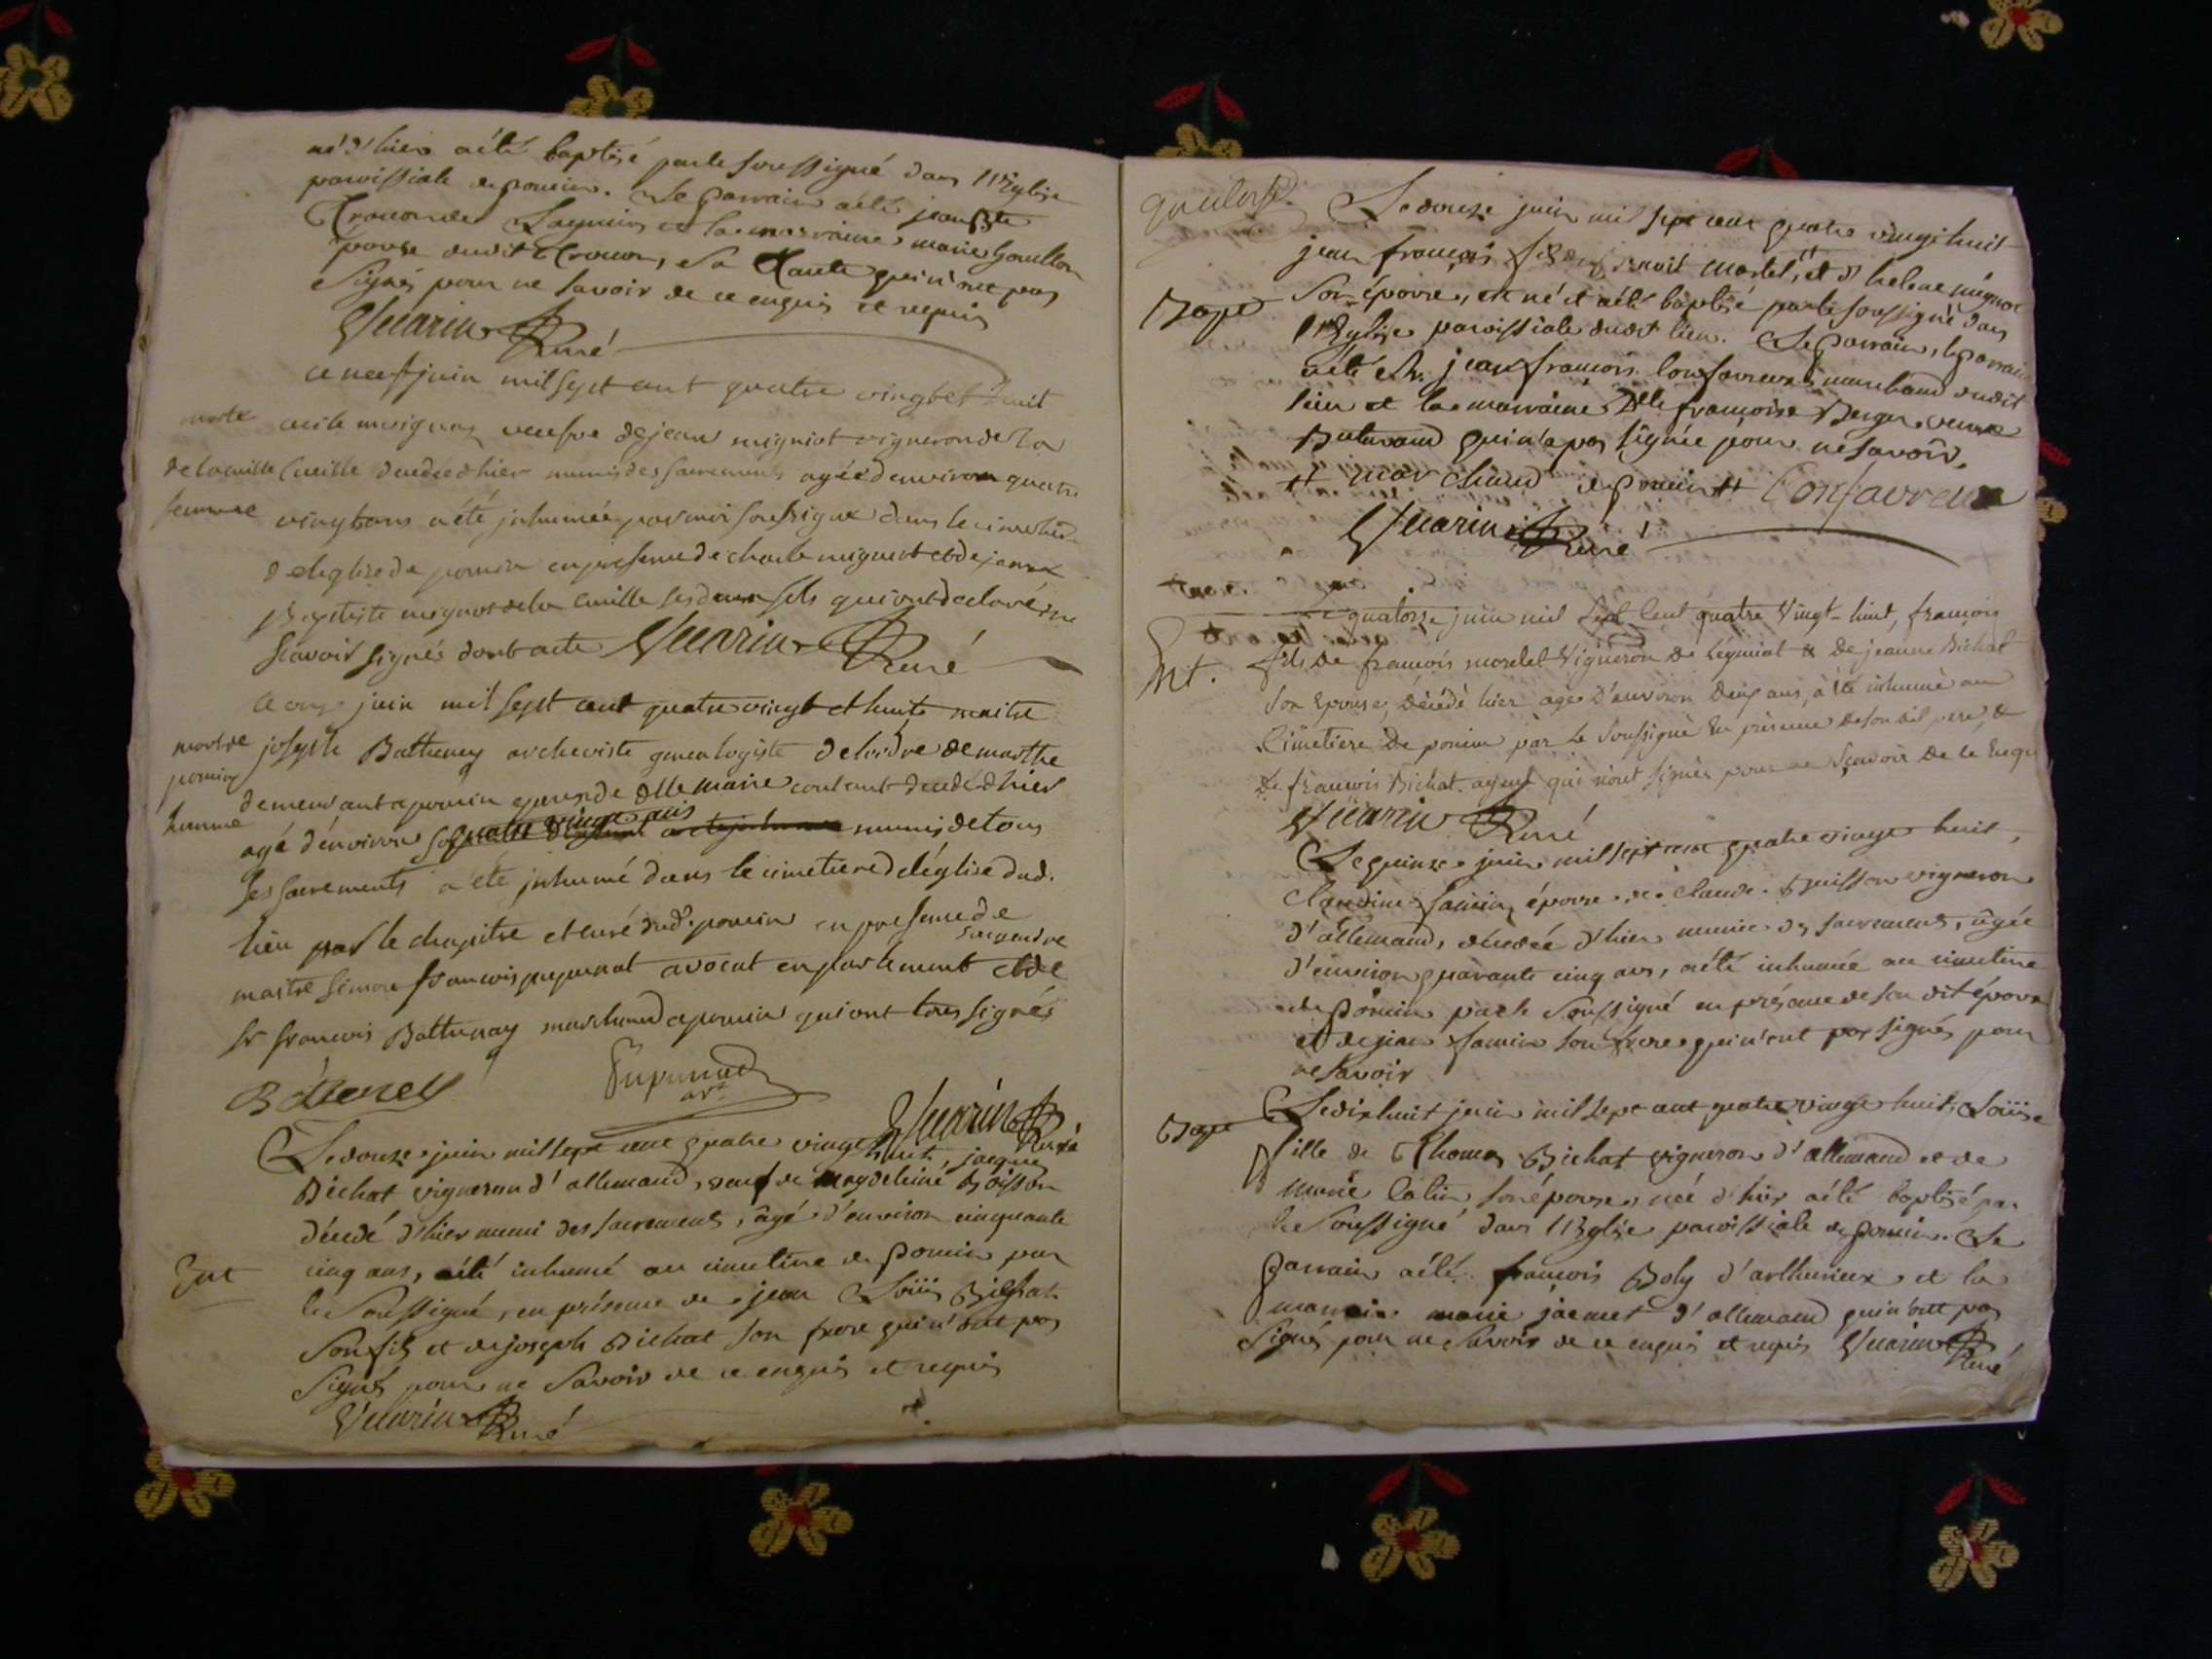 né d'hier a été baptisé par le soussigné dans l'Eglise
paroissiale de poncin. Le parrain a été jean Bte
et la marraine marie Goullon
epouse dudit, sa tante qui n'ont pas
signés pour ne savoir de ce enquis et requis
Guarin Curé
ce neuf juin mil sept cent quatre vingt et huit
morte
veufve de jean migniot vigneron de la
de la cuille
Cueille decedée d'hier munis des sacrements agée d'environ quatre
femme
vingt ans a été inhumée par moi soussigné dans le cimetiere
de leglise de poncin en presence de charle mignot et de jean
Baptiste mignot de la cueille ses deux fils qui ont declaré ne
scavoir signés dont acte Guarin Curé
ce onze juin mil sept cent quatre vingt et huit maitre
mort de
joseph Batteney archeviste genealogiste de lordre de malthe
poncin
demeurant a poncin epoux de Dlle marie coutant decedé d'hier
homme
agé d'environ quatre vingt ans munis de tous
les sacrements a été inhumé dans le cimetiere de l'église dud.
lieu par le chapitre et curé dud. poncin en presence de
son gendre
maitre simon francois avocat en parlement et de
sr francois Battenay marchand a poncin qui ont tous signés
Guarin Curé
Le douze juin mil sept cent quatre vingt huit, jacques
Bichat vigneron d'allemand, veuf de magdeleine Boisson
décedé d'hier muni des sacrements, agé d'environ cinquante
Ent
cinq ans, a été inhumé au cimetiere de poncin par
le soussigné, en présence de jean Loüis Bichat
son fils et de joseph Bichat son frere qui n'ont pas
signés pour ne savoir de ce enquis et requis
Guarin Curé
Le douze juin mil sept cent quatre vingt huit
jean françois fils de benoit martel, # et d'helene mignot
Bapt
son épouse, est né et a été baptisé par le soussigné dans
l'Eglise paroissiale dudit lieu. Le parrain, le parrain
a été Sr. jean françois Confavreux marchand dudit
lieu et la marraine Dlle françoise Berger veuve
qui n'a pas signée pour ne savoir,
# marchand de poncin # Confavreux
Guarin Curé
quatorze juin mil sept cent quatre vingt-huit, françois
Ent.
fils de françois morelet vigneron de & de jeanne Bichat
son epouse, décédé hier agé d'environ deux ans, a été inhumé au
Cimetiere de poncin par le soussigné en présence de son dit pere, &
de françois Bichat ayeul qui n'ont signés pour ne sçavoir de ce enquis
Guarin Curé
Le quinze juin mil sept cent quatre vingt huit,
Claudine Jannin, épouse de claude Buisson vigneron
d'allemand, décédée d'hier munie des sacrements, agée
d'environ quarante cinq ans, a été inhumée au cimetiere
de poncin par le soussigné en présence de son dit époux
et de jean Jannin son frere qui n'ont pas signés pour
ne savoir
Bapt
Le dix huit juin mil sept cent quatre vingt huit, Loüise
fille de Thomas Bichat vigneron d'allemand et de
marie Colin, son épouse, née d'hier a été baptisé par
le soussigné dans l'Eglise paroissiale de poncin. Le
parrain a été françois Boly d'arthurieux et la
marraine marie jacmet d'allemand qui n'ont pas
signés pour ne savoir de ce enquis et requis Guarin Curé